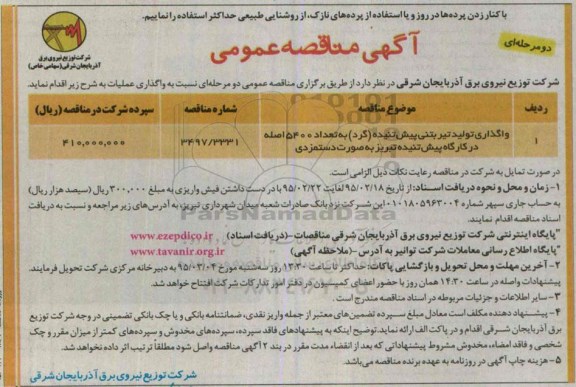 با کنار زدن پرده‌ها در روز و یا استفاده از پرده‌های نازک، از روشنایی طبیعی حداکثر استفاده را نماییم.
آگهی مناقصه عمومی
دو مرحله‌ای
شرکت توزیع نیروی برق
آذربایجان شرقی (سهامی خاص)
شرکت توزیع نیروی برق آذربایجان شرقی در نظر دارد از طریق برگزاری مناقصه عمومی دو مرحله‌ای نسبت به واگذاری عملیات به شرح زیر اقدام نماید.
ردیف موضوع مناقصه شماره مناقصه سپرده شرکت در مناقصه (ریال)
۱ واگذاری تولید تیر بتنی پیش تنیده (گرد) به تعداد ۵۴۰۰ اصله در کارگاه پیش تنیده تبریز به صورت دستمزدی ۳۴۹۷/۳۳۳۱ ۴۱۰,۰۰۰,۰۰۰
در صورت تمایل به شرکت در مناقصه رعایت نکات ذیل الزامی است.
۱- زمان و محل و نحوه دریافت اسناد: از تاریخ ۹۵/۰۲/۱۸ لغایت ۹۵/۰۲/۲۲ با در دست داشتن فیش واریزی به مبلغ ۳۰۰,۰۰۰ ریال (سیصد هزار ریال)
به حساب جاری سپهر شماره ۰۱۰۱۸۰۵۹۶۳۰۰۴ این شرکت نزد بانک صادرات شعبه میدان شهرداری تبریز، به آدرس‌های زیر مراجعه و نسبت به دریافت
اسناد مناقصه اقدام نمایند.
*پایگاه اینترنتی شرکت توزیع نیروی برق آذربایجان شرقی مناقصات - (دریافت اسناد) www.ezepdico.ir
*پایگاه اطلاع رسانی معاملات شرکت توانیر به آدرس - (ملاحظه آگهی) www.tavanir.org.ir
۲- آخرین مهلت و محل تحویل و بازگشایی پاکات: حداکثر تا ساعت ۱۳:۳۰ روز سه‌شنبه مورخ ۹۵/۰۳/۰۴ به دبیرخانه مرکزی شرکت تحویل فرمایند.
پیشنهادات واصله در ساعت ۱۴:۳۰ همان روز با حضور اعضای کمیسیون در دفتر امور تدارکات شرکت افتتاح خواهد شد.
۳- سایر اطلاعات و جزئیات مربوطه در اسناد مناقصه مندرج است.
۴- پیشنهاد دهنده مکلف است معادل مبلغ سپرده تضمین‌های معتبر از جمله واریز نقدی، ضمانتنامه بانکی و یا چک بانکی تضمینی در وجه شرکت توزیع
برق آذربایجان شرقی اقدام و در پاکت الف ارائه نماید. توضیح اینکه به پیشنهادهای فاقد سپرده، سپرده‌های مخدوش و سپرده‌های کمتر از میزان مقرر و چک
شخصی و فاقد امضاء، مخدوش مشروط پیشنهاداتی که بعد از انقضاء مدت مقرر در بند ۲ آگهی مناقصه واصل شود مطلقاً ترتیب اثر داده نخواهد شد.
۵- هزینه چاپ آگهی در روزنامه به عهده برنده مناقصه می‌باشد.
شرکت توزیع نیروی برق آذربایجان شرقی
ParsNamadData